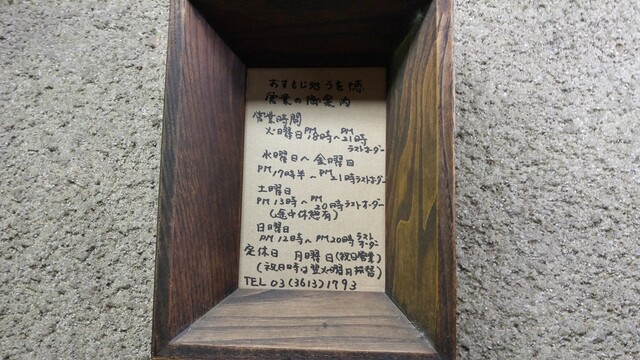 おすもじ処うを徳
営業の御案内
営業時間
火曜日PM18時〜PM21時
ラストオーダー
水曜日〜金曜日
PM17時半〜PM21時ラストオーダー
土曜日
PM13時〜PM20時ラストオーダー
(途中休憩有)
日曜日
PM12時〜PM20時ラストオーダー
定休日 月曜日(祝日営業)
(祝日時は翌火曜日振替)
TEL 03(3613)1793